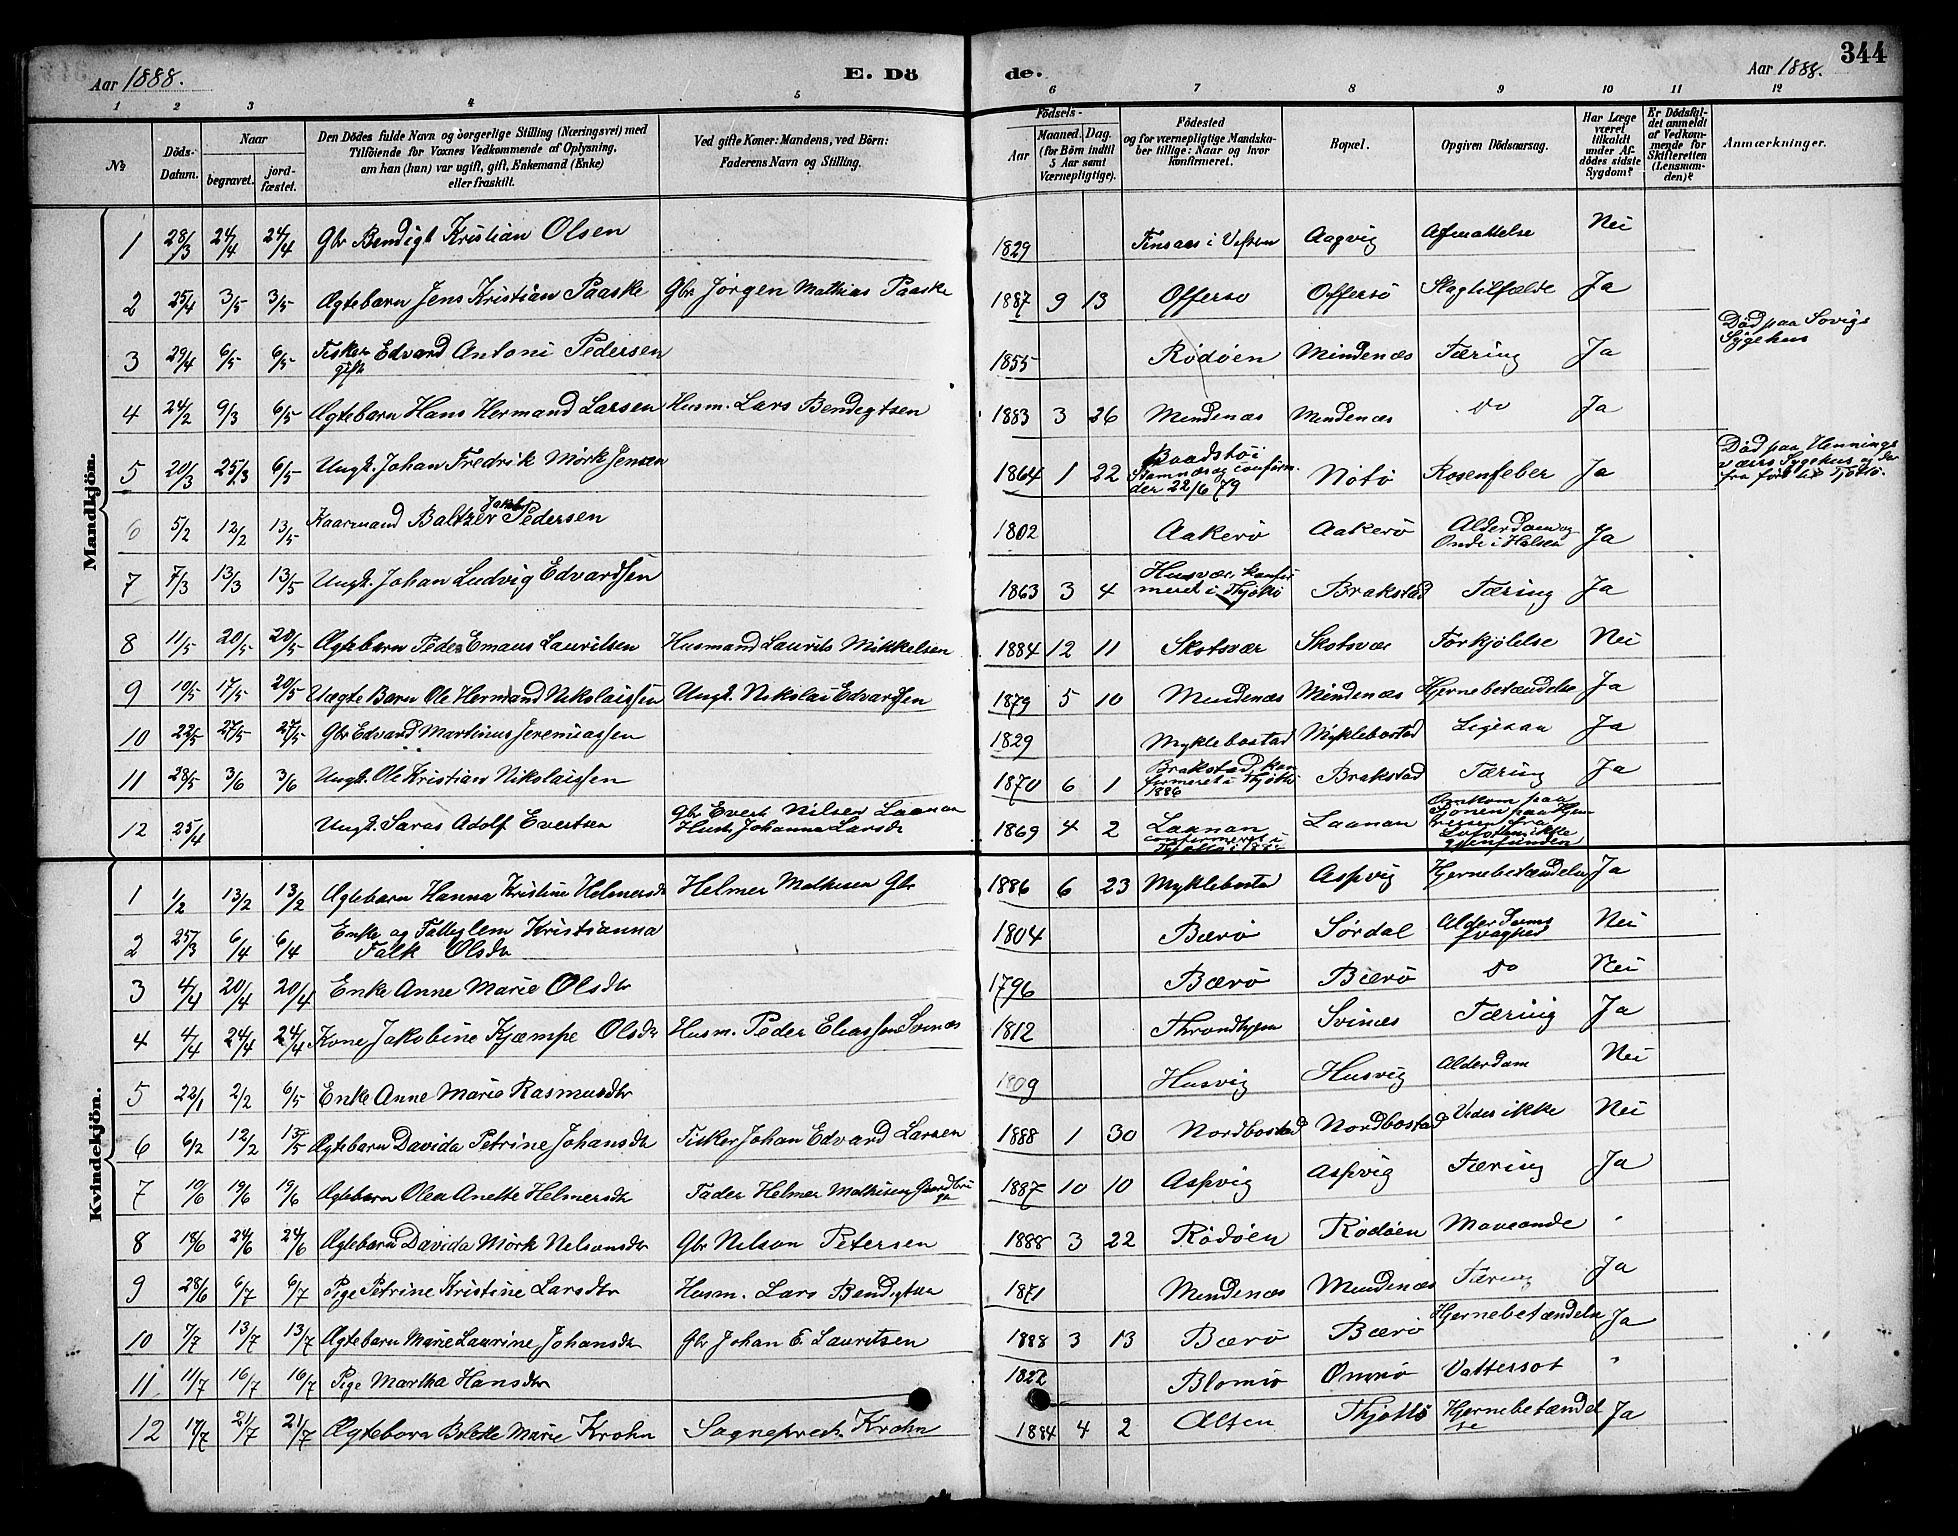 344
Aar 1888. E. Dö de. Aar 1888.
1 2 3 4 5 6 7 8 9 10 11 12
№
Döds-Datum.
Naar begravet. jord-fæstet.
Den Dödes fulde Navn og borgerlige Stilling (Næringsvei) med
Tilföiende for Voxnes Vedkommende af Oplysning,
om han (hun) var ugift, gift, Enkemand (Enke)
eller fraskilt.
Ved gifte Koner: Mandens, ved Börn:
Faderens Navn og Stilling.
Födsels-
Aar Maaned. Dag.
(for Börn indtil
5 Aar samt
Værnepligtige).
Födested
og for værnepligtige Mandska-
ber tillige: Naar og hvor
konfirmeret.
Bopæl.
Opgiven Dödsaarsag.
Har Læge
været
tilkaldt
under Af-
dödes sidste
Sygdom?
Er Dödsfal-
det anmeldt
af Vedkom-
mende for
Skifteretten
(Lensman-
den)?
Anmærkninger.
Mandkjön.
1 28/3 24/4 24/4 Gbr Bendigt Kristian Olsen 1829 i Vefsen Aagvig Afmattelse Nei
2 25/4 3/5 3/5 Ægtebarn Jens Kristian Paaske Gbr Jørgen Mathias Paaske 1887 9 13 Offersø Offersö Slagtilfælde Ja
3 29/4 6/5 6/5 Fisker Edvard Antoni Pedersen gift 1855 Rödöen Mindenæs Tæring Ja Död paa Sovigs Sygehus
4 24/2 9/3 6/5 Ægtebarn Hans Hermand Larsen Husm. Lars Bendegtsen 1883 3 26 Mindenæs Mindenæs Do Ja
5 20/3 25/3 6/5 Ungk. Johan Fredrik Mörk Jensen 1864 1 22 Baadstöi Stamnes og confirm. der 22/6 79 Nötö Rosenfeber Ja Död paa Hennings værs Sygehus og der fra fört til Tjöttö.
6 5/2 12/2 13/5 Kaarmand Baltzer Jakob Pedersen 1802 Aakerö Aakerö Alderdom og Onde i Halsen Ja
7 7/3 13/3 13/5 Ungk. Johan Ludvig Edvardsen 1863 3 4 Husvær, konfir meret i Thjöttö Brakstad Tæring Ja
8 11/5 20/5 20/5 Ægtebarn Peder Emaus Lauritsen Husmand Laurits Mikkelsen 1884 12 11 Skotsvær Skotsvær Forkjölelse Nei
9 10/5 17/5 20/5 Uægte Barn Ole Hermand Nikolaissen Ungk. Nikolai Edvardsen 1879 5 10 Mindenæs Mindenæs Hjernebetændelse Ja
10 22/5 27/5 27/5 Gbr Edvard Martinus Jeremiassen 1829 Myklebostad Myklebostad Ligesaa Ja
11 28/5 3/6 3/6 Ungk. Ole Kristian Nikolaissen 1870 6 1 Brakstad, kon firmeret i Thjöttö 1886 Brakstad Tæring Ja
12 25/4 Ungk. Saras Adolf Evertsen Gbr Evert Nilsen Laanan Hustr Johanna Larsdr 1869 4 2 Laanan confirmeret i Thjöttö Laanan Omkom paa Sjöen paa Hjem reisen fra Lofoten ikke gjenfunden
Kvindekjön.
1 1/2 13/2 13/2 Ægtebarn Hanna Kristine Helmersdr Helmer Mathisen Gbr 1886 6 23 Myklebosta Aspvig Hjernebetændelse Ja
2 25/3 6/4 6/4 Enke og Fattiglem Kristianna Falk Olsdr 1804 Bærö Sördal Alderdoms svaghed Nei
3 4/4 20/4 20/4 Enke Anne Marie Olsdtr 1796 Bærö Bærö Do Nei
4 4/4 24/4 24/4 Kone Jakobine Kjæmpe Olsdr Husm. Peder Eliassen 1812 Throndhjem Svinæs Tæring Ja
5 22/1 2/2 6/5 Enke Anne Marie Rasmusdtr 1809 Husvig Husvig Alderdom Nei
6 6/2 12/2 13/5 Ægtebarn Davida Petrine Johansdtr Fisker Johan Edvard Larsen 1888 1 30 Nordbostad Nordbostad Vides ikke Nei
7 10/6 19/6 19/6 Ægtebarn Olea Anette Helmersdtr Fader Helmer Mathisen Gaardbru ger 1887 10 10 Aspvig Aspvig Tæring Ja
8 18/6 24/6 24/6 Ægtebarn Davida Mörk Nelsonsdtr Gbr Nelson Petersen 1888 3 22 Rödöen Rödöen Maveonde "
9 28/6 6/7 6/7 Pige Petrine Kristine Larsdtr Husm. Lars Bendigtsen 1871 Mindenæs Mindenæs Tæring Ja
10 7/7 13/7 13/7 Ægtebarn Marie Laurine Johansdtr Gbr Johan E. Lauritsen 1888 3 13 Bærö Bærö Hjernebetændelse Ja
11 11/7 16/7 16/7 Pige Martha Hansdtr 1822 Blomsö Omsö Vattersot "
12 17/7 21/7 21/7 Ægtebarn Bolette Marie Krohn Sogneprest Krohn 1884 4 2 Alten Thjöttö Hjernebetændel se Ja